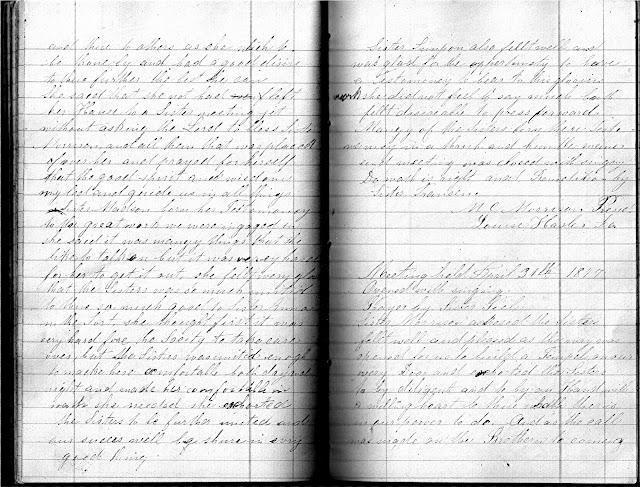 and there to others as she wich to
be done by and had a good desire
to  further the best she can
She said that she not had left
her House to a Sister meeting yet
without asking the Lord to bless
 and all them that was placed
over her and prayed for herself
that the good spirit and wisdom
my led and guide us in all things
Sister Madson born her Testamoney
to the great work we were ingaged in
she said it was manyg things that she
like to talk on but it was very hard
for her to get it out she felt very glad
that the Sisters was so much united
to them so much good to
 she thought first it was
very hard for the Society to take care
over but the Sisters was united enough
to mache here comfortable both day and
night and made her comfortable in
 she needed she exhorted
the Sisters to be further united and
our succes well be shure in evry
good thing
Sister Simpson also fellt well and
was glad to the opertunity to have
a Testamoney to bear to the glorious
work she did not feel to say much but
fellt desireable to press forward.
Manny of the Sisters bory there Testa-
money in a  and humble maner
and meeting was closed with singing
Do what is right and Benediction by
Sister Fransen
M. C. Morrison Pres
Louise Hasler
Meeting held April 30th 1877
Opened with singing
Prayer by Sister
Sister Morrison adresed the Sisters
felt well and pleased as the way was
opened for us to build a Tempel in our
very Day and exhorted the Sisters
to be diligent and to by on hand with
a willing heart to thos call there is
in our power to do. And as the call
was made on the Brethern to come